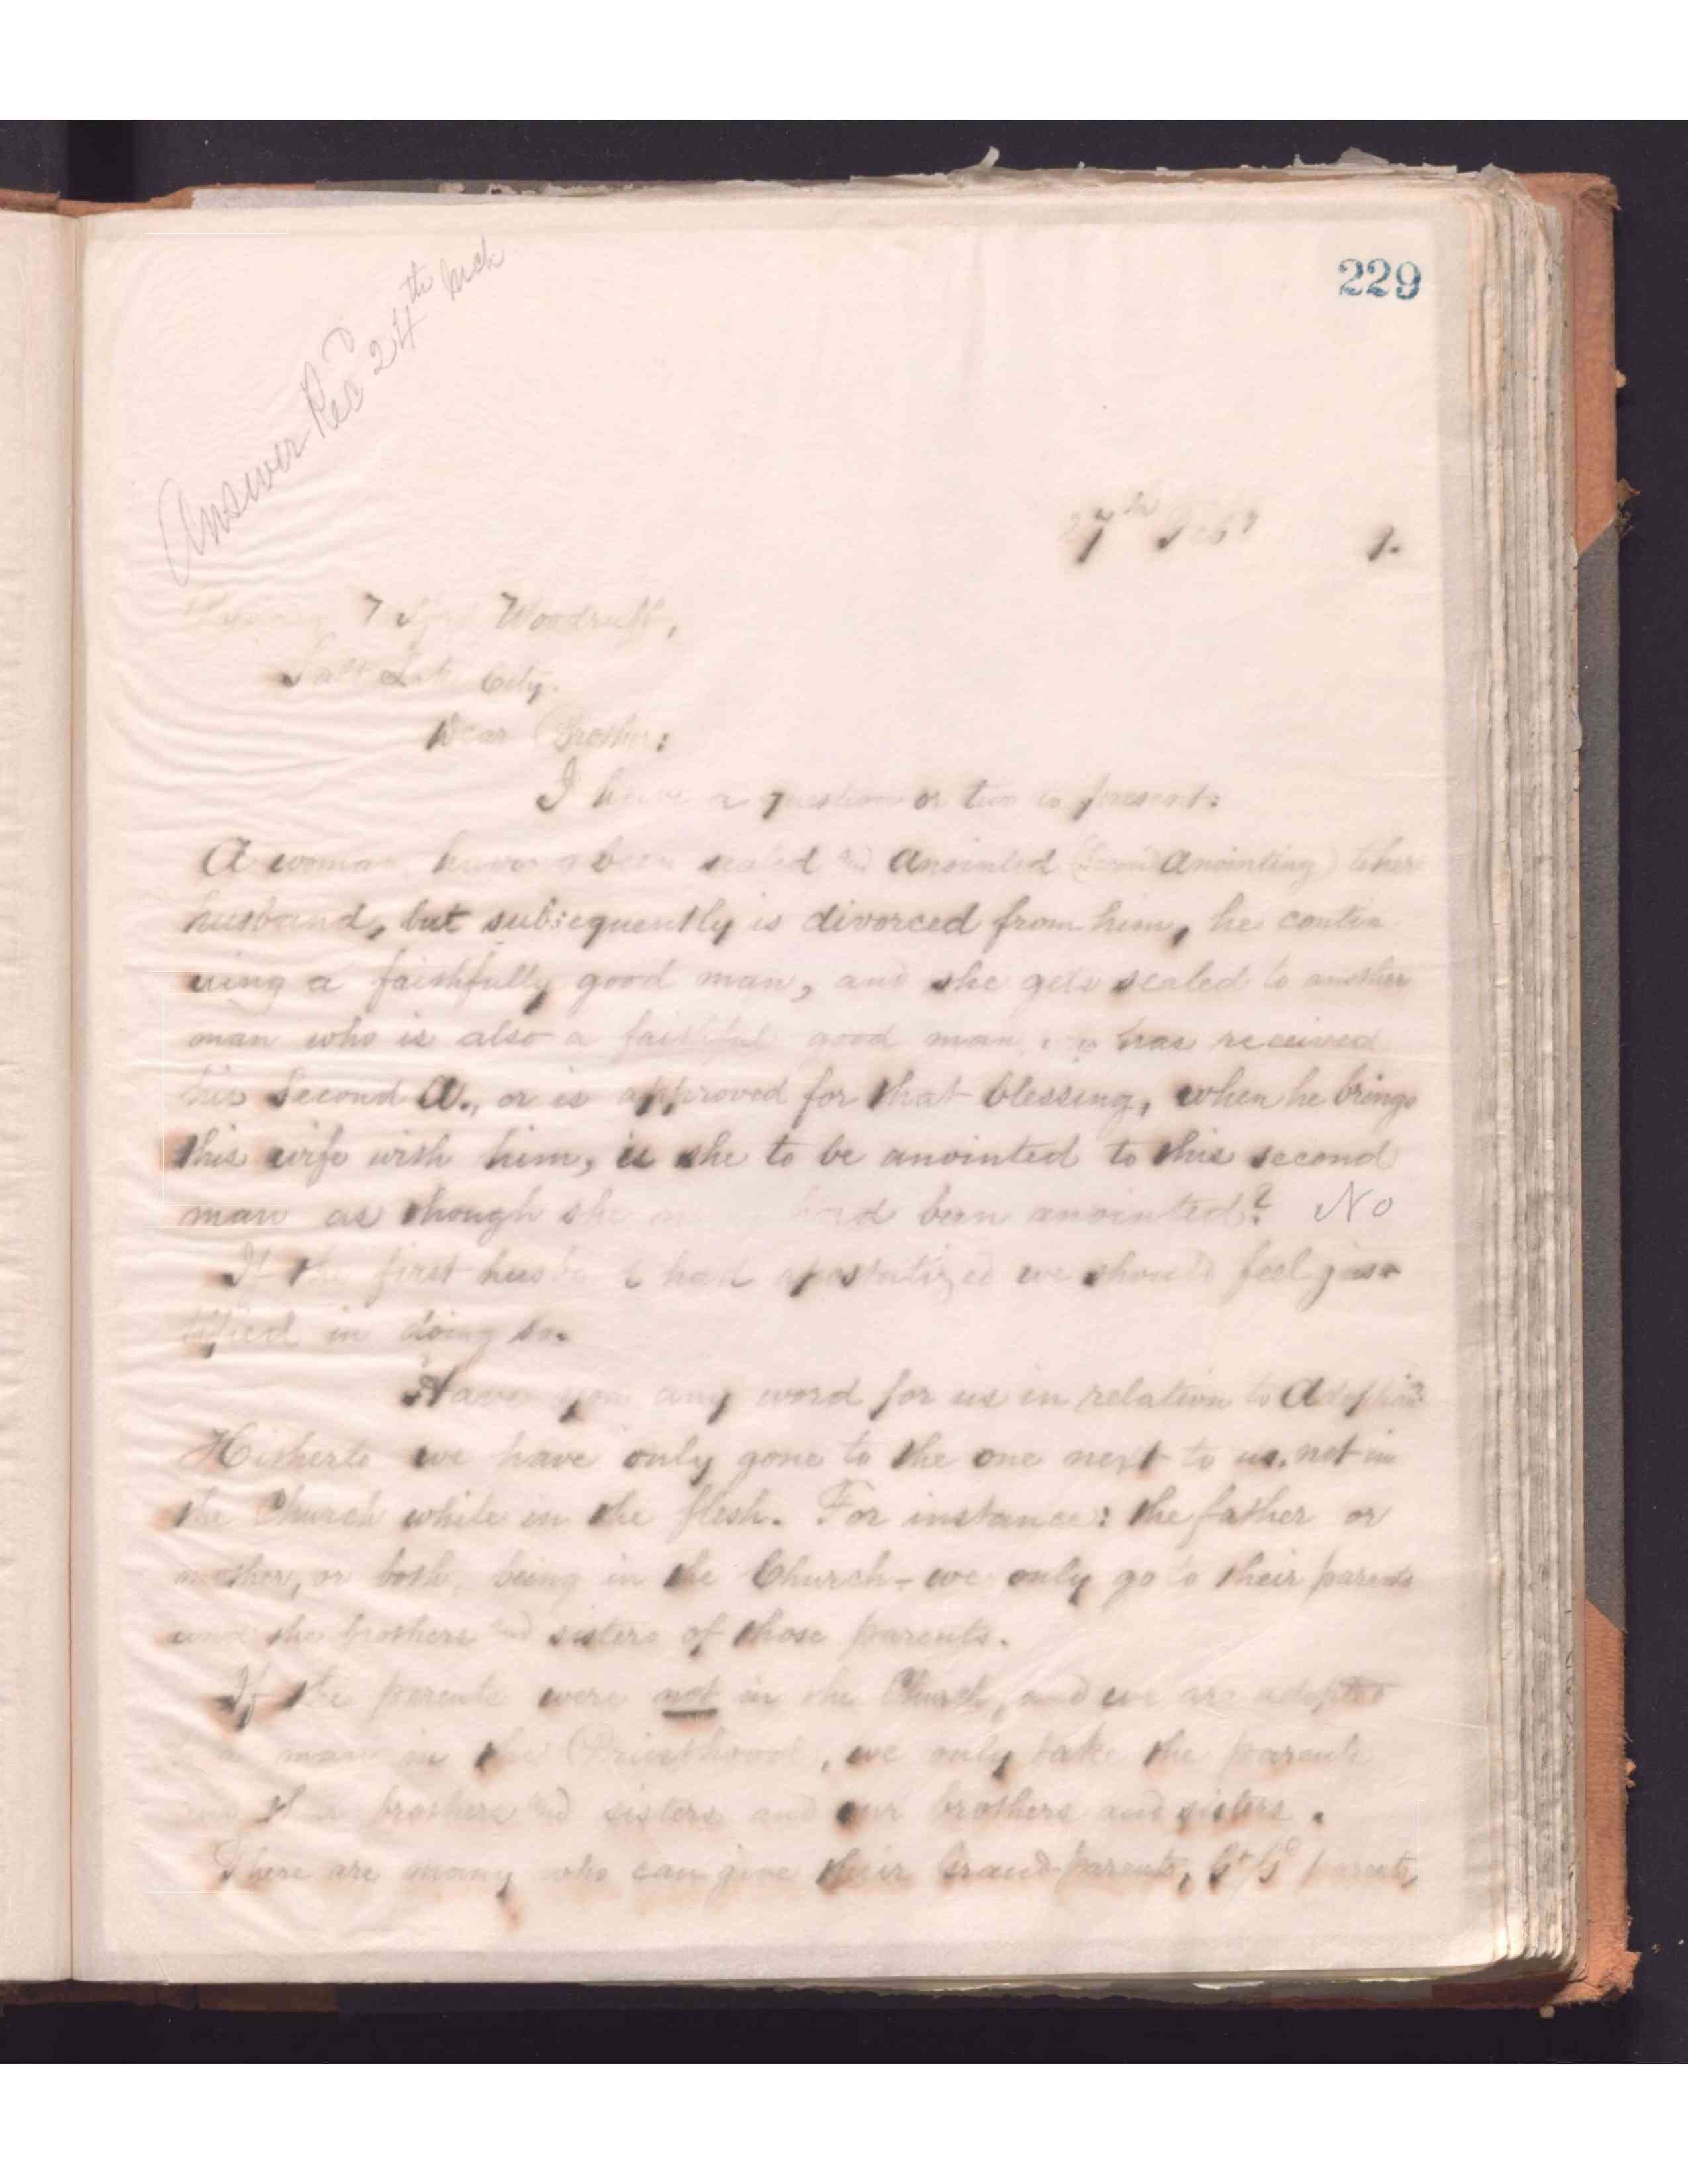 229
Answer Rec'd 24th Mch
27th Feby 1.
Woodruff,
Salt Lake City.
Dear Brother:
I have a question or two to present:
A woman having been sealed and anointed (Second Anointing) to her
husband, but subsequently is divorced from him, he contin
uing a faithfully good man, and she gets sealed to another
man who is also a faithful good man, has received
his Second A., or is approved for that blessing, when he brings
this wife with him, is she to be anointed to this second
man as though she had been anointed? No
If the first husband had apostatized we should feel jus-
tified in doing so.
Have you any word for us in relation to Adoption?
Hitherto we have only gone to the one next to us, not in
the Church while in the flesh. For instance: the father or
mother, or both, being in the Church - we only go to their parents
and the brothers and sisters of those parents.
If the parents were not in the Church, and we are adopted
man in the Priesthood, we only take the parents
brothers and sisters and our brothers and sisters.
There are many who can give their Grand-parents, Gt Gd parents,